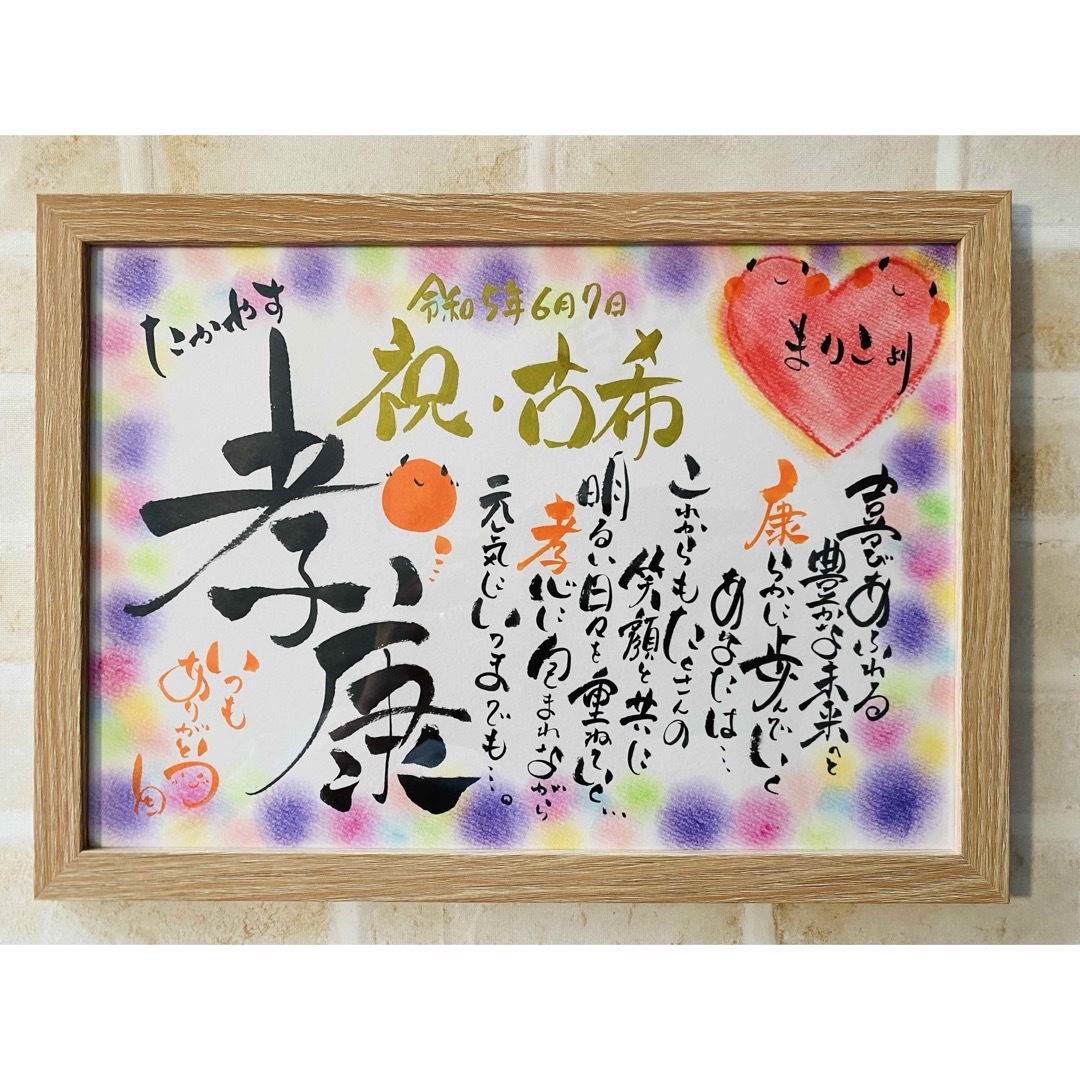 令和5年6月7日
祝・古希
まりこより
たかやす
孝康
喜びあふれる
豊かな未来へと
康らかに歩んでいく
あなたは…
これからもたくさんの
笑顔と共に
明るい日々を重ねていく…
孝心に包まれながら
元気にいつまでも…。
いつも
ありがとう